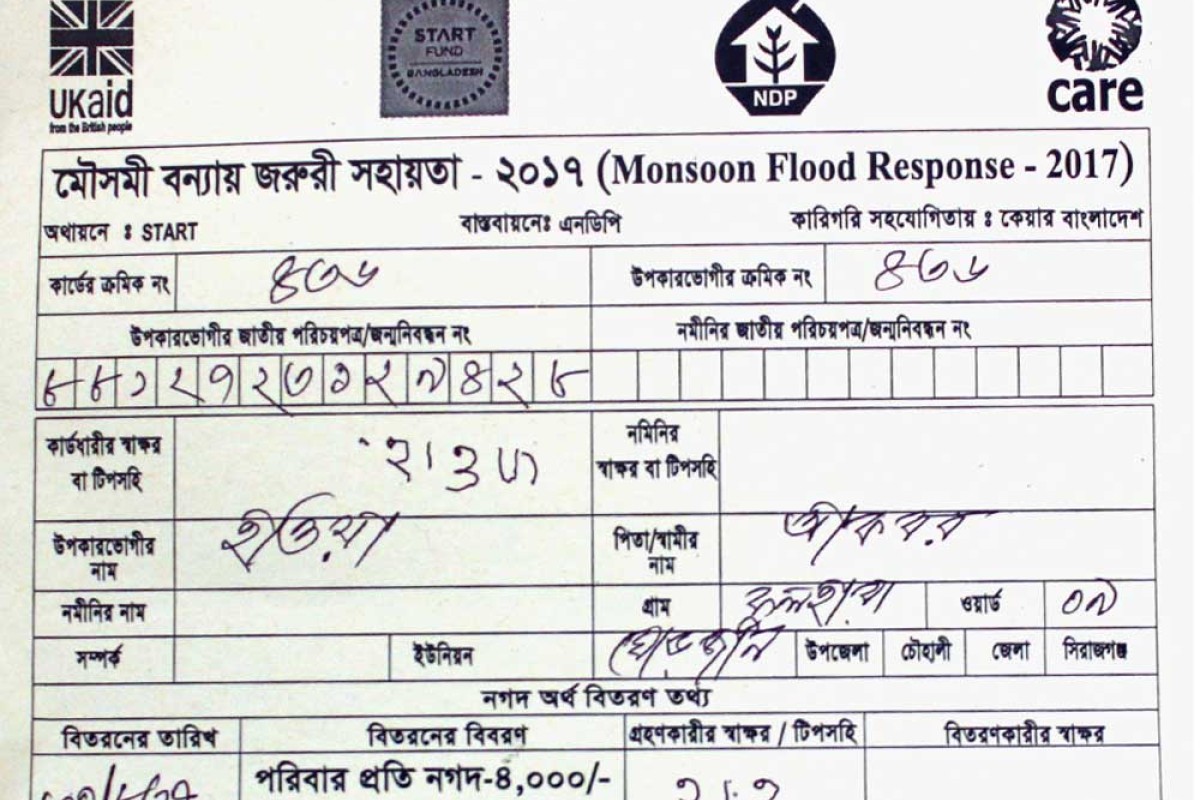 UKaid
from the British people
START
FUND
BANGLADESH
NDP
care
মৌসমী বন্যায় জরুরী সহায়তা - ২০১৭ (Monsoon Flood Response - 2017)
অর্থায়নে ঃ START বাস্তবায়নেঃ এনডিপি কারিগরি সহযোগিতায় ঃ কেয়ার বাংলাদেশ
কার্ডের ক্রমিক নং ৪৩৬ উপকারভোগীর ক্রমিক নং ৪৩৬
উপকারভোগীর জাতীয় পরিচয়পত্র/জন্মনিবন্ধন নং নমীনির জাতীয় পরিচয়পত্র/জন্মনিবন্ধন নং
৮৮১২৭২৩১২৯৪২৮
কার্ডধারীর স্বাক্ষর নমিনির
বা টিপসহি স্বাক্ষর বা টিপসহি
উপকারভোগীর পিতা/স্বামীর আকবর
নাম নাম
নমীনির নাম গ্রাম ওয়ার্ড ০৯
সম্পর্ক ইউনিয়ন উপজেলা চৌহালী জেলা সিরাজগঞ্জ
নগদ অর্থ বিতরণ তথ্য
বিতরনের তারিখ বিতরনের বিবরণ গ্রহণকারীর স্বাক্ষর / টিপসহি বিতরণকারীর স্বাক্ষর
পরিবার প্রতি নগদ-4,000/-